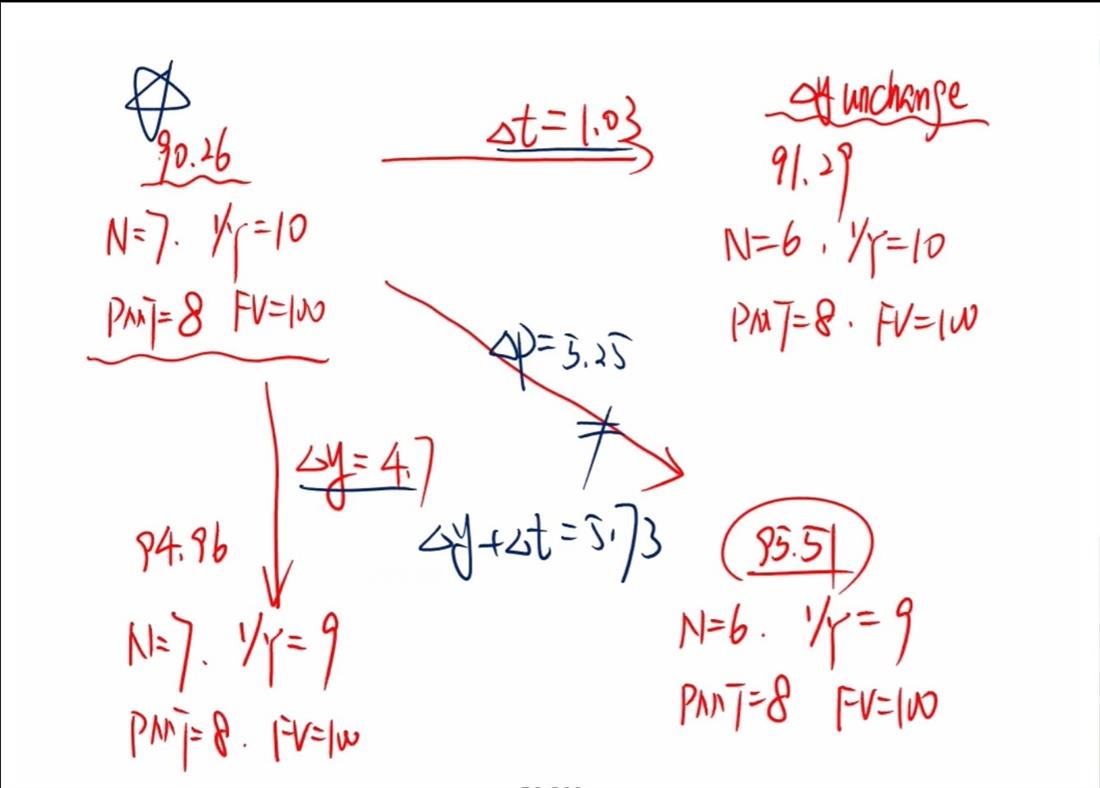 Δt=1.03
Δy unchange
90.26
91.29
N=7. I/Y=10
N=6. I/Y=10
PMT=8 FV=100
PMT=8. FV=100
Δp=5.25
Δy=4.7
94.96
Δy+Δt=5.73
95.51
N=7. I/Y=9
N=6. I/Y=9
PMT=8. FV=100
PMT=8 FV=100